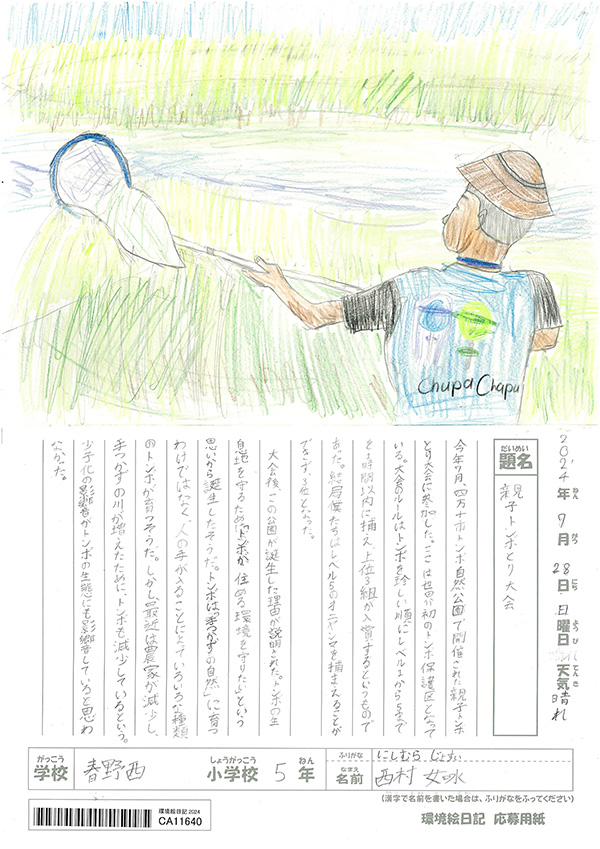 Chupa Chapu
2024年7月28日 日曜日 天気 晴れ
ねん
がつ
にち
ようび
てんき
だいめい
題名
親子トンボとり大会
今年7月、四万十市トンボ自然公園で開催された親子トンボ
とり大会に参加した。ここは世界初のトンボ保護区となって
いる。大会のルールはトンボを珍しい順にレベル1から5まで
を1時間以内に捕え、上位3組が入賞するというもので
あった。結局僕たちはレベル5のオニヤンマを捕まえることが
できず、3位となった。
大会後、この公園が誕生した理由が説明された。トンボの生
息地を守るため「トンボが住める環境を守りたい」という
思いから誕生したそうだ。トンボは「手つかずの自然」に育つ
わけではなく、人の手が入ることによっていろいろな種類
のトンボが育つそうだ。しかし、最近は農家が減少し、
手つかずの川が増えたために、トンボも減少しているという。
少子化の影響がトンボの生態にも影響していると思わ
なかった。
がっこう
学校
春野西
しょうがっこう
小学校
5
ねん
年
ふりがな
にしむら じょすい
なまえ
名前
西村 女水
(漢字で名前を書いた場合は、ふりがなをふってください)
環境絵日記2024
CA11640
環境絵日記 応募用紙